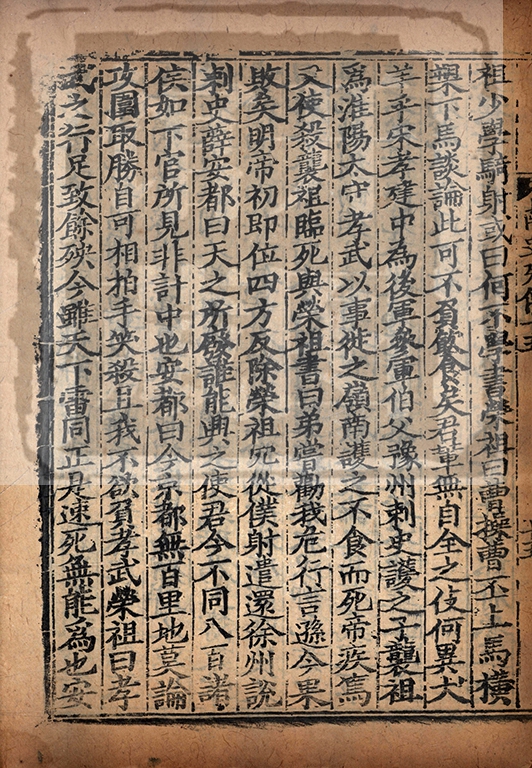 祖少學騎射或曰何不學書榮祖曰曹操曹丕上馬橫
槊下馬談論此可不負飲食矣君輩無自全之伎何異犬
羊乎宋孝建中為後軍參軍伯父豫州刺史護之子襲祖
爲淮陽太守孝武以事徙之嶺南護之不食而死帝疾篤
又使殺襲祖臨死與榮祖書曰弟嘗勸我危行言遜今果
敗矣明帝初即位四方反除榮祖冗從僕射遣還徐州說
刺史薛安都曰天之所廢誰能興之使君今不同八百諸
侯如下官所見非計中也安都曰今京都無百里地莫論
攻圍取勝自可相拍手笑殺且我不欲負孝武榮祖曰孝
武之行足致餘殃今雖天下雷同正是速死無能爲也安